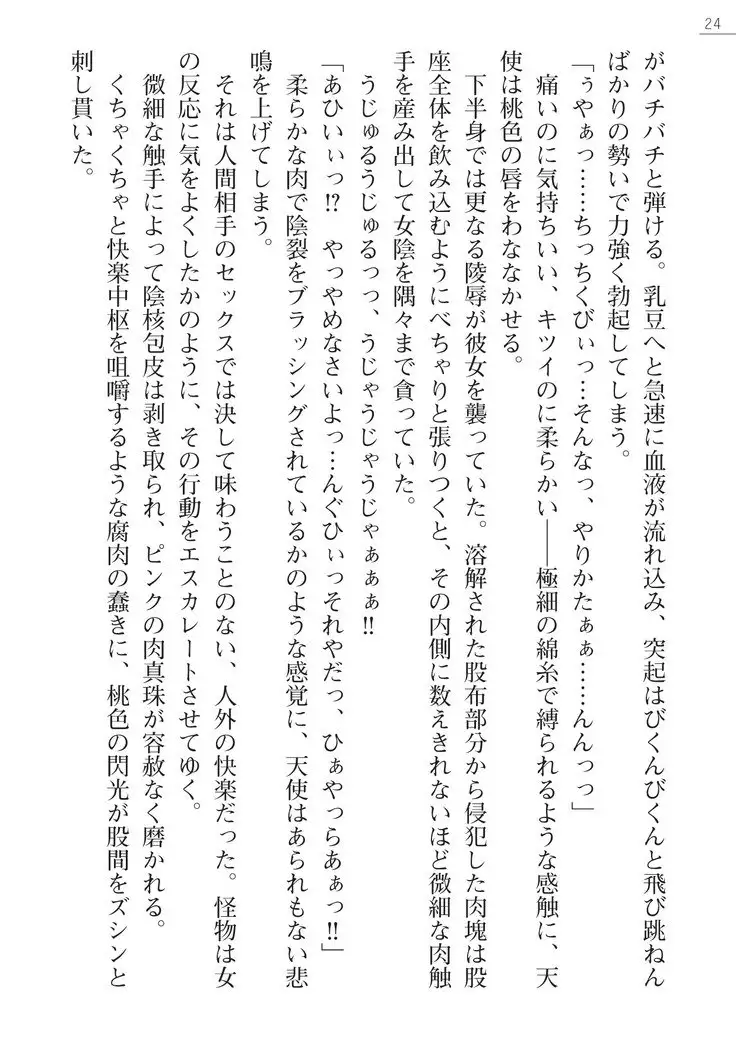 24
がバチバチと弾ける。乳豆へと急速に血液が流れ込み、突起はびくんびくんと飛び跳ねん
ばかりの勢いで力強く勃起してしまう。
「ぅやぁっ……ちっちくびぃっ…そんなっ、やりかたぁぁ……んんっっ」
痛いのに気持ちいい、キツイのに柔らかい――極細の綿糸で縛られるような感触に、天
使は桃色の唇をわななかせる。
下半身では更なる陵辱が彼女を襲っていた。溶解された股布部分から侵犯した肉塊は股
座全体を飲み込むようにべちゃりと張りつくと、その内側に数えきれないほど微細な肉触
手を産み出して女陰を隅々まで貪っていた。
うじゅるうじゅるっっ、うじゃうじゃうじゃぁぁぁ‼
「あひいぃっ⁉　やっやめなさいよっ…んぐひぃっそれやだっ、ひぁやっらあぁっ‼」
柔らかな肉で陰裂をブラッシングされているかのような感覚に、天使はあられもない悲
鳴を上げてしまう。
それは人間相手のセックスでは決して味わうことのない、人外の快楽だった。怪物は女
の反応に気をよくしたかのように、その行動をエスカレートさせてゆく。
微細な触手によって陰核包皮は剥き取られ、ピンクの肉真珠が容赦なく磨かれる。
くちゃくちゃと快楽中枢を咀嚼するような腐肉の蠢きに、桃色の閃光が股間をズシンと
刺し貫いた。